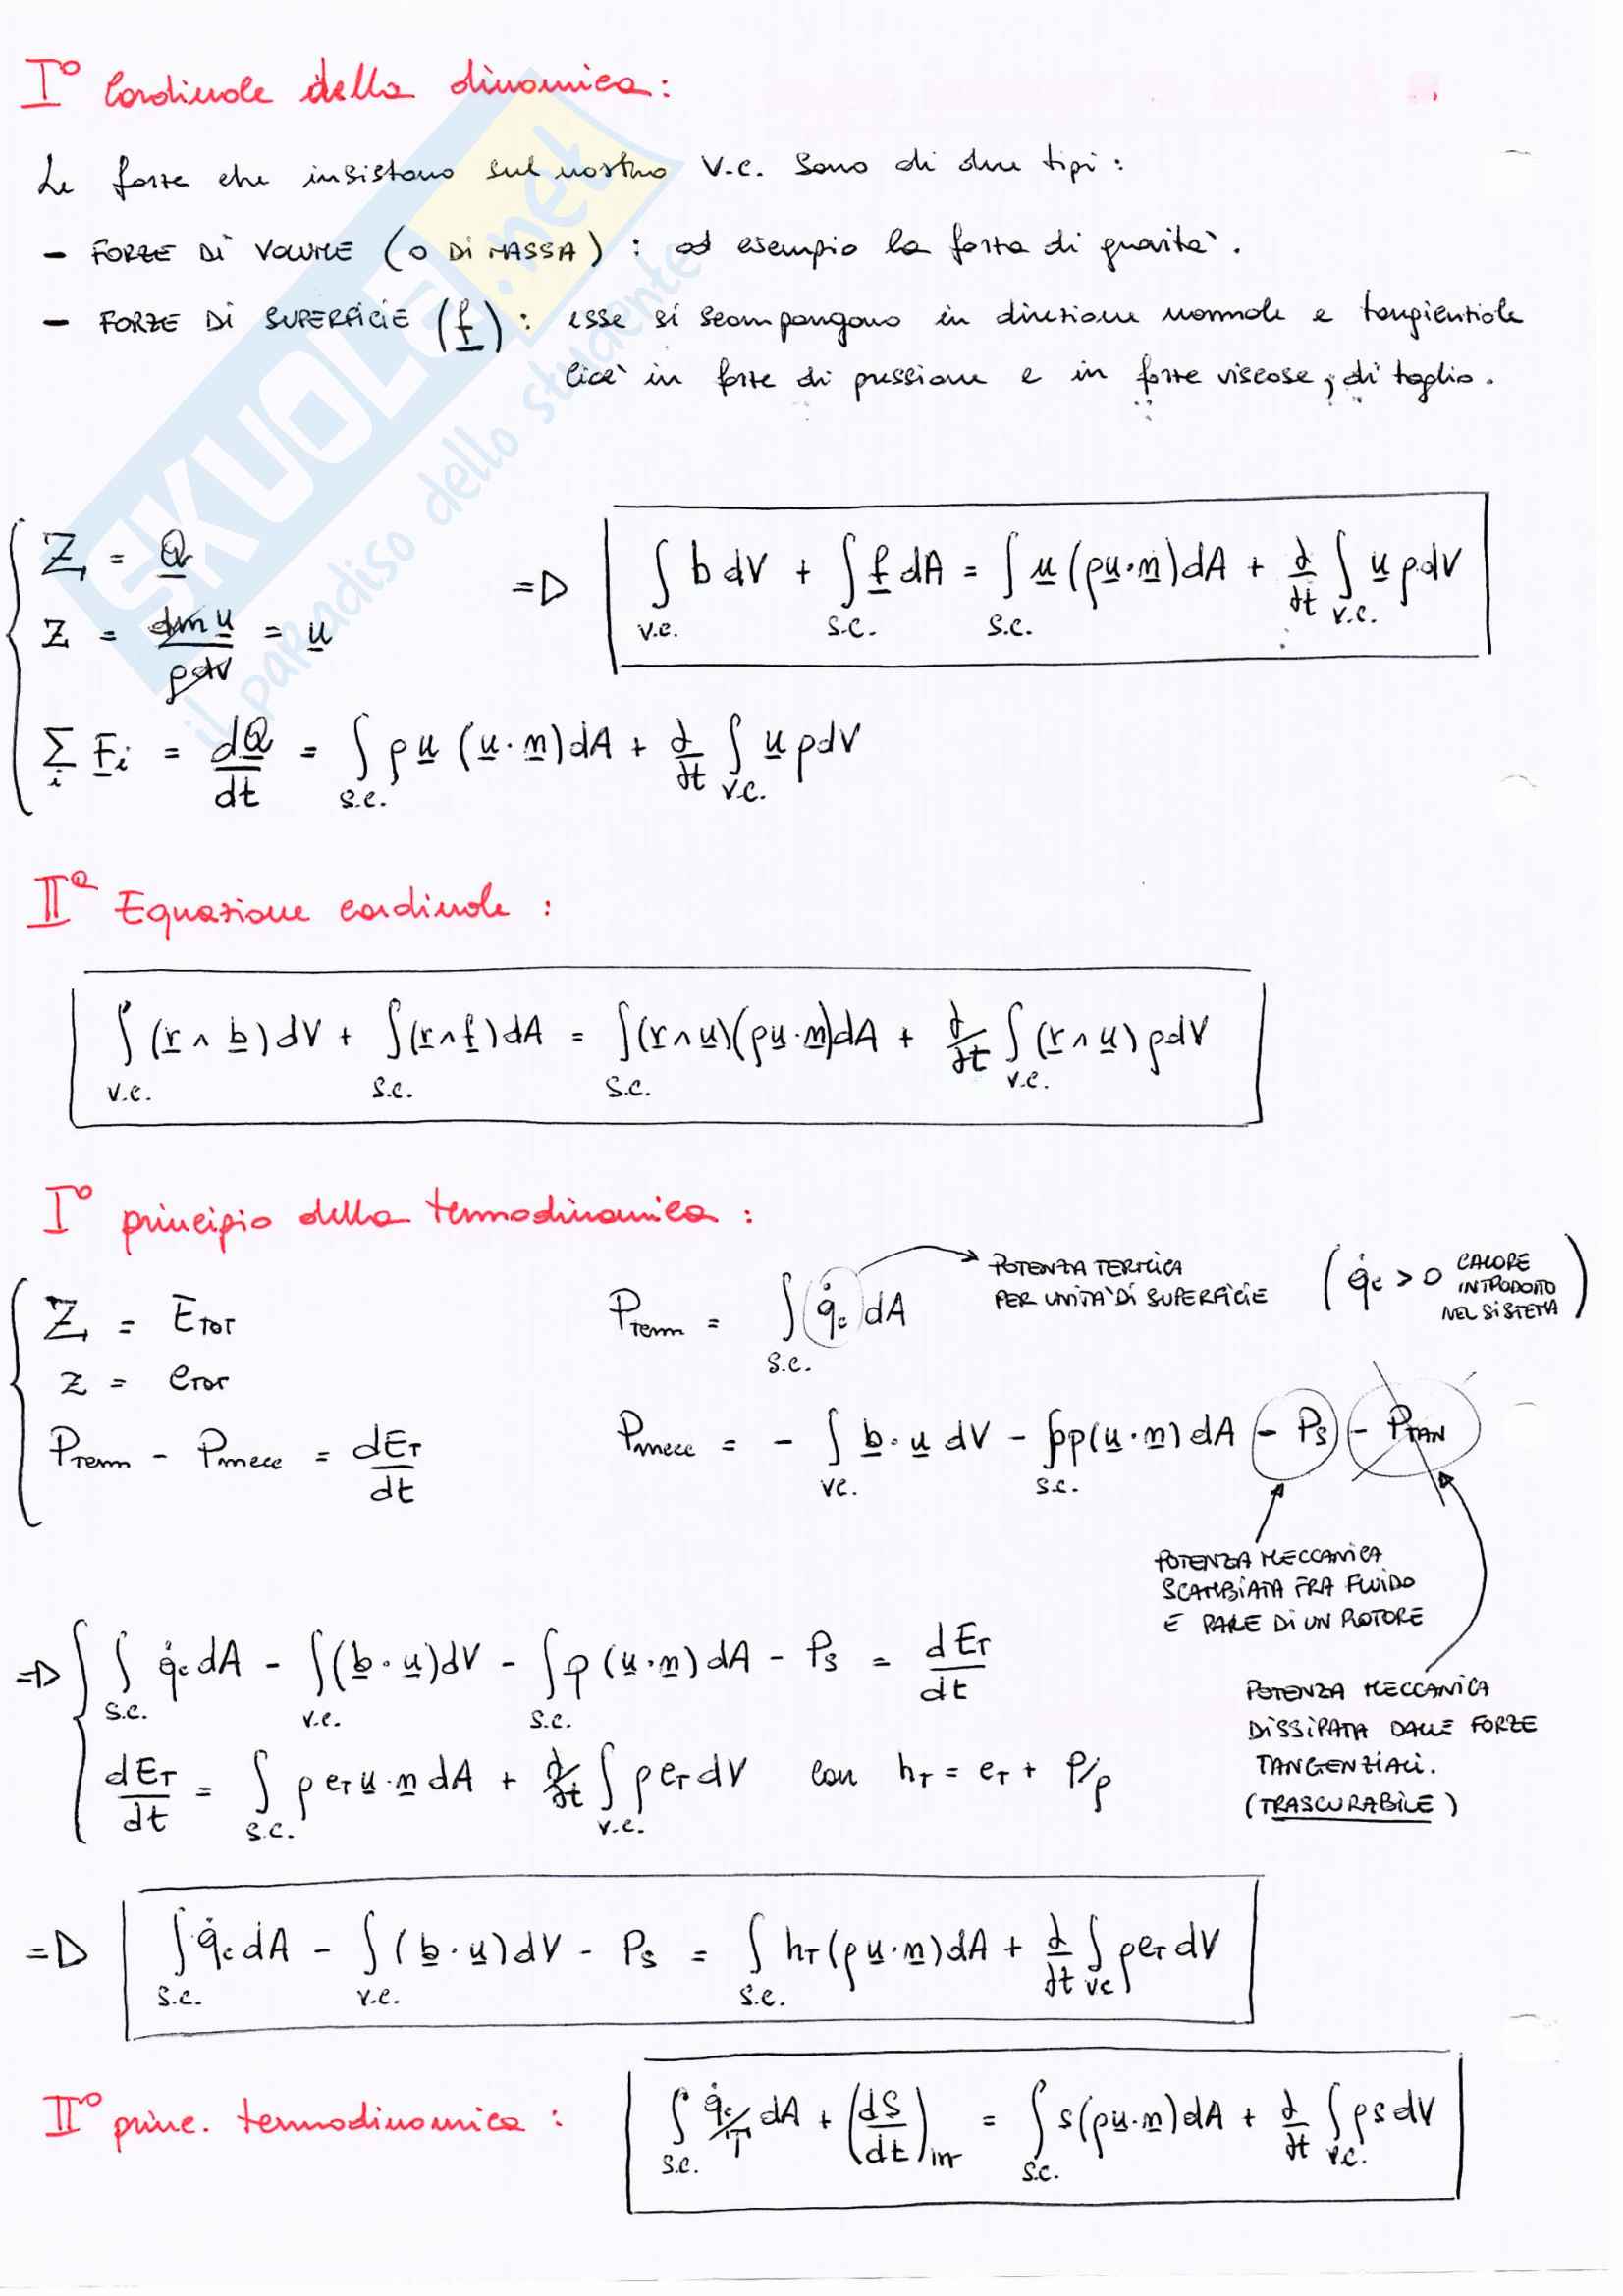 I° Cardinale della dinamica:
Le forze che insistono sul nostro V.C. sono di due tipi:
- FORZE DI VOLUME (O DI MASSA): ad esempio la forza di gravità.
- FORZE DI SUPERFICIE (f): esse si scompongono in direzione normale e tangenziale
cioè in forze di pressione e in forze viscose, di taglio.
SKUOLA.net
il paradiso dello studente
Z = Q
z = dm u / ρdV = u
=> ∫v.c. b dV + ∫s.c. f dA = ∫s.c. u (ρu·n)dA + ∂/∂t ∫v.c. u ρdV
Σi Fi = dQ/dt = ∫s.c. ρu (u·n)dA + ∂/∂t ∫v.c. u ρdV
IIa Equazione cardinale:
∫v.c. (r∧b)dV + ∫s.c. (r∧f)dA = ∫s.c. (r∧u)(ρu·n)dA + ∂/∂t ∫v.c. (r∧u)ρdV
I° principio della termodinamica:
Z = ETOT
z = eTOT
Pterm - Pmecc = dET/dt
Pterm = ∫s.c. q̇c dA
POTENZA TERMICA
PER UNITÀ DI SUPERFICIE
(q̇c > 0 CALORE
INTRODOTTO
NEL SISTEMA)
Pmecc = - ∫vc. b·u dV - ∫s.c. p(u·n)dA - Ps - PTAN
POTENZA MECCANICA
SCAMBIATA FRA FLUIDO
E PALE DI UN ROTORE
POTENZA MECCANICA
DISSIPATA DALLE FORZE
TANGENZIALI.
(TRASCURABILE)
=> ∫s.c. q̇c dA - ∫v.c. (b·u)dV - ∫s.c. p(u·n)dA - Ps = dET/dt
dET/dt = ∫s.c. ρ eT u·n dA + ∂/∂t ∫v.c. ρ eT dV con hT = eT + P/ρ
=> ∫s.c. q̇c dA - ∫v.c. (b·u)dV - Ps = ∫s.c. hT(ρu·n)dA + ∂/∂t ∫vc ρeT dV
II° princ. termodinamica: ∫s.c. q̇c/T dA + (dS/dt)irr = ∫s.c. s(ρu·n)dA + ∂/∂t ∫v.c. ρs dV